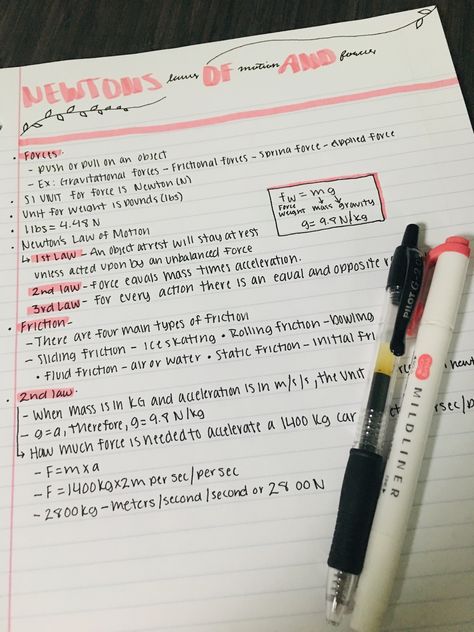 NEWTONS laws OF motion AND forces
• Forces -
- push or pull on an object
- Ex: Gravitational forces - Frictional forces - spring force - applied force
• SI UNIT for force is Newton (N)
• Unit for weight is pounds (lbs)
• 1 lbs = 4.48 N
• Newton's Law of Motion
fw = mg
Force weight mass gravity
g = 9.8 N/kg
↳ 1st Law - An object at rest will stay at rest
unless acted upon by an unbalanced force
2nd law - Force equals mass times acceleration.
3rd Law - for every action there is an equal and opposite
• Friction -
- There are four main types of friction
- Sliding friction - ice skating • Rolling friction - bowling
• Fluid friction - air or water • Static friction - initial
• 2nd law -
- When mass is in KG and acceleration is in m/s/s, the unit
- g=a, therefore, g=9.8 N/kg
→ How much force is needed to accelerate a 1400 kg car
- F=mxa
- F=1400kgx2m per sec/per sec
- 2800kg - meters/second/second or 2800N
PILOT G-2
MILDLINER